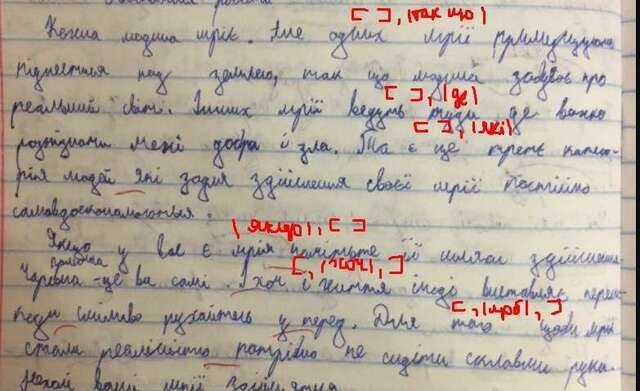 [ ], (так що)
Кожна людина мріє. Але одних мрії примушують
піднестися над землею, так що людина забуває про
[ ], (де)
реальний світ. Інших мрії ведуть туди де важко
[ ], (які)
розпізнати межі добра і зла. Та є ще третя катего-
рія людей які задля здійснення своєї мрії постійно
самовдосконалюються.
(якщо), [ ]
Якщо у вас є мрія шляхи здійснення
Чарівна паличка - це ви самі. І хоч і життя іноді виставляє переш-
[ , (хоч), ]
поди сміливо рухайтесь у перед. Для того щоби мрії
[ , (щоб), ]
стали реальністю потрібно не сидіти склавши руки.
Нехай ваші мрії